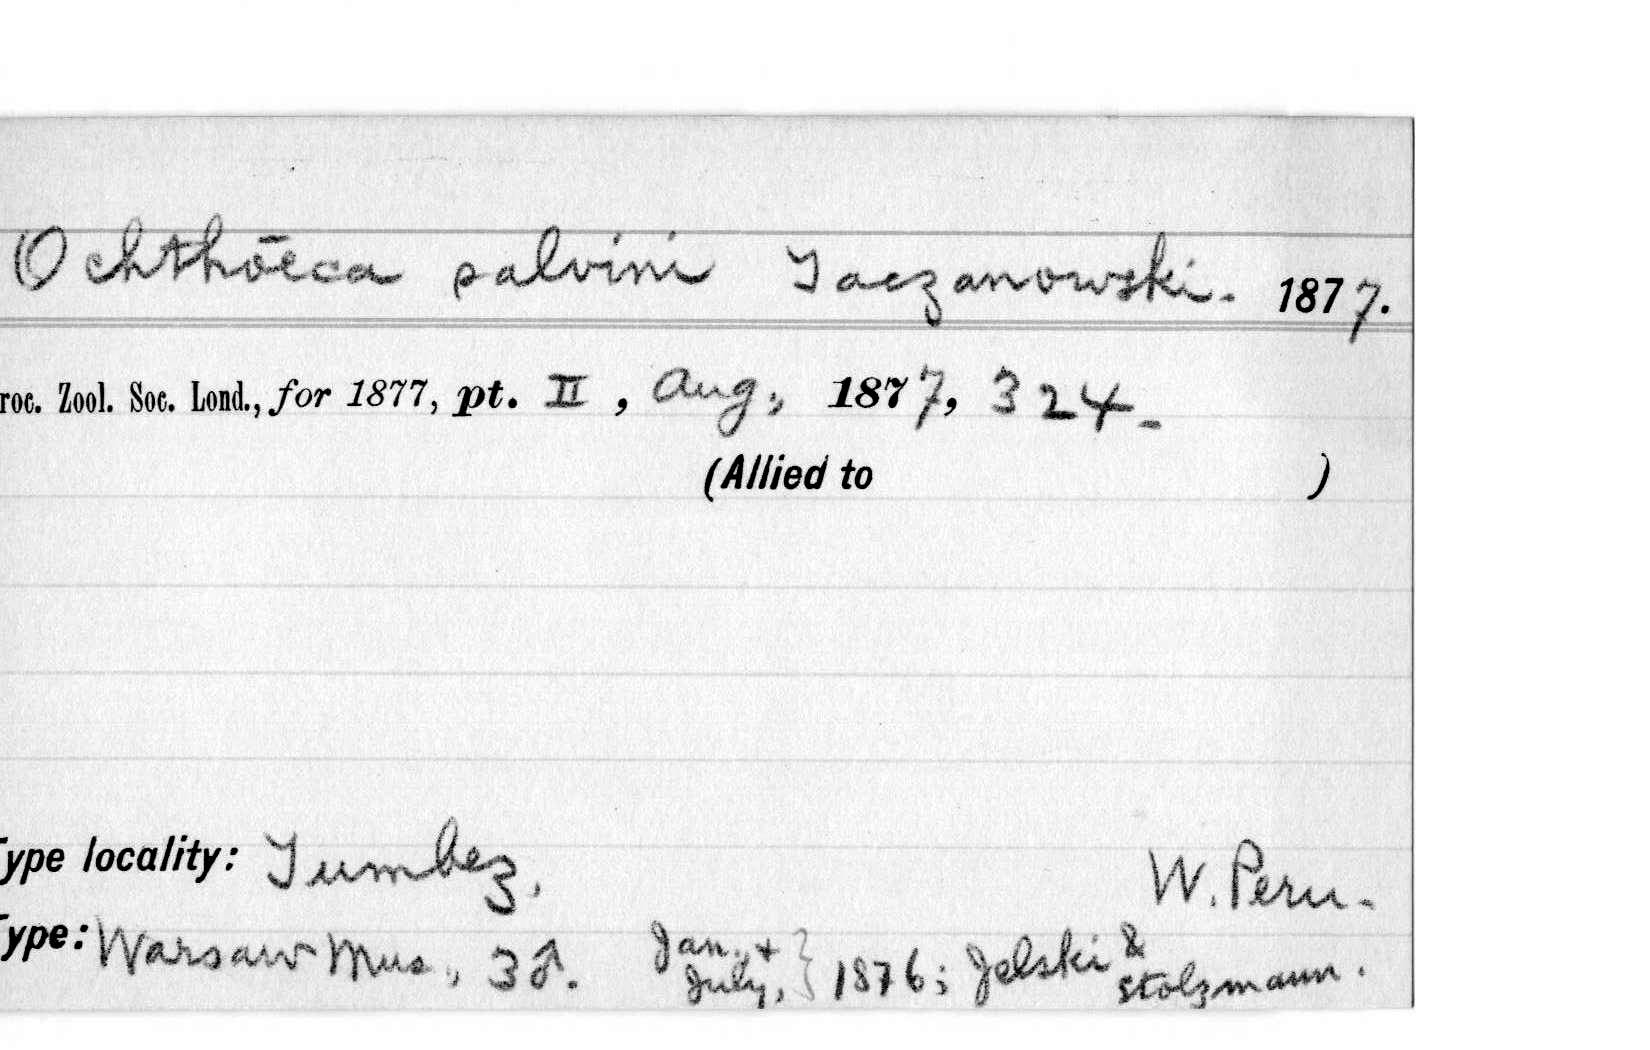 Ochthōeca salvini Taczanowski. 1877.
roc. Zool. Soc. Lond., for 1877, pt. II, Aug., 1877, 324.
(Allied to )
Type locality: Tumbez, W. Peru.
Type: Warsaw Mus., 3♂. Jan. + July, } 1876; Jelski & Stolzmann.